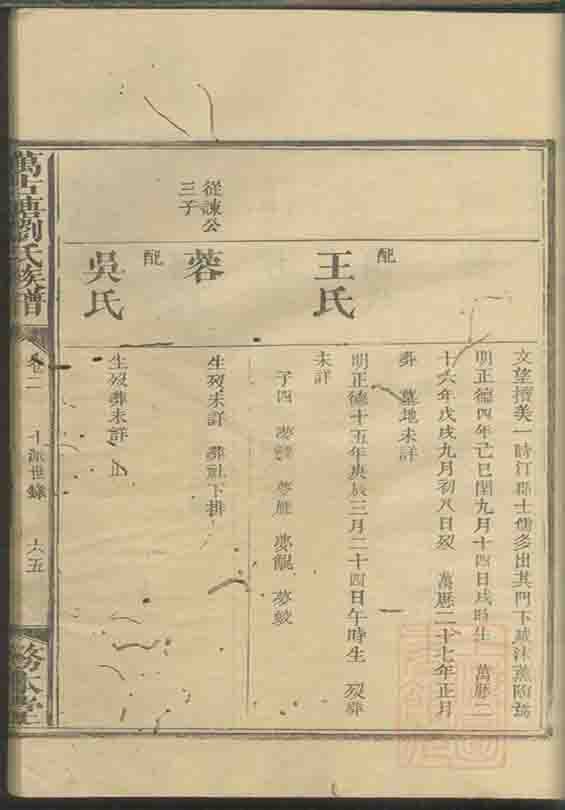 文望擅美一時汀郡士儒多出其門下
明正德四年己巳閏九月十四日戌時生 萬厯二
十六年戊戌九月初八日歿 萬厯二十七年正月
葬 墓地未詳
配
王氏
明正德十五年庚辰三月二十四日午時生 歿葬
未詳
子四 夢 夢 夢 夢蛟
從諫公
三子
蓉
生歿未詳 葬社下排
配
吳氏
生歿葬未詳
萬 塘劉氏族譜
卷二 十派世錄 六五
務本堂